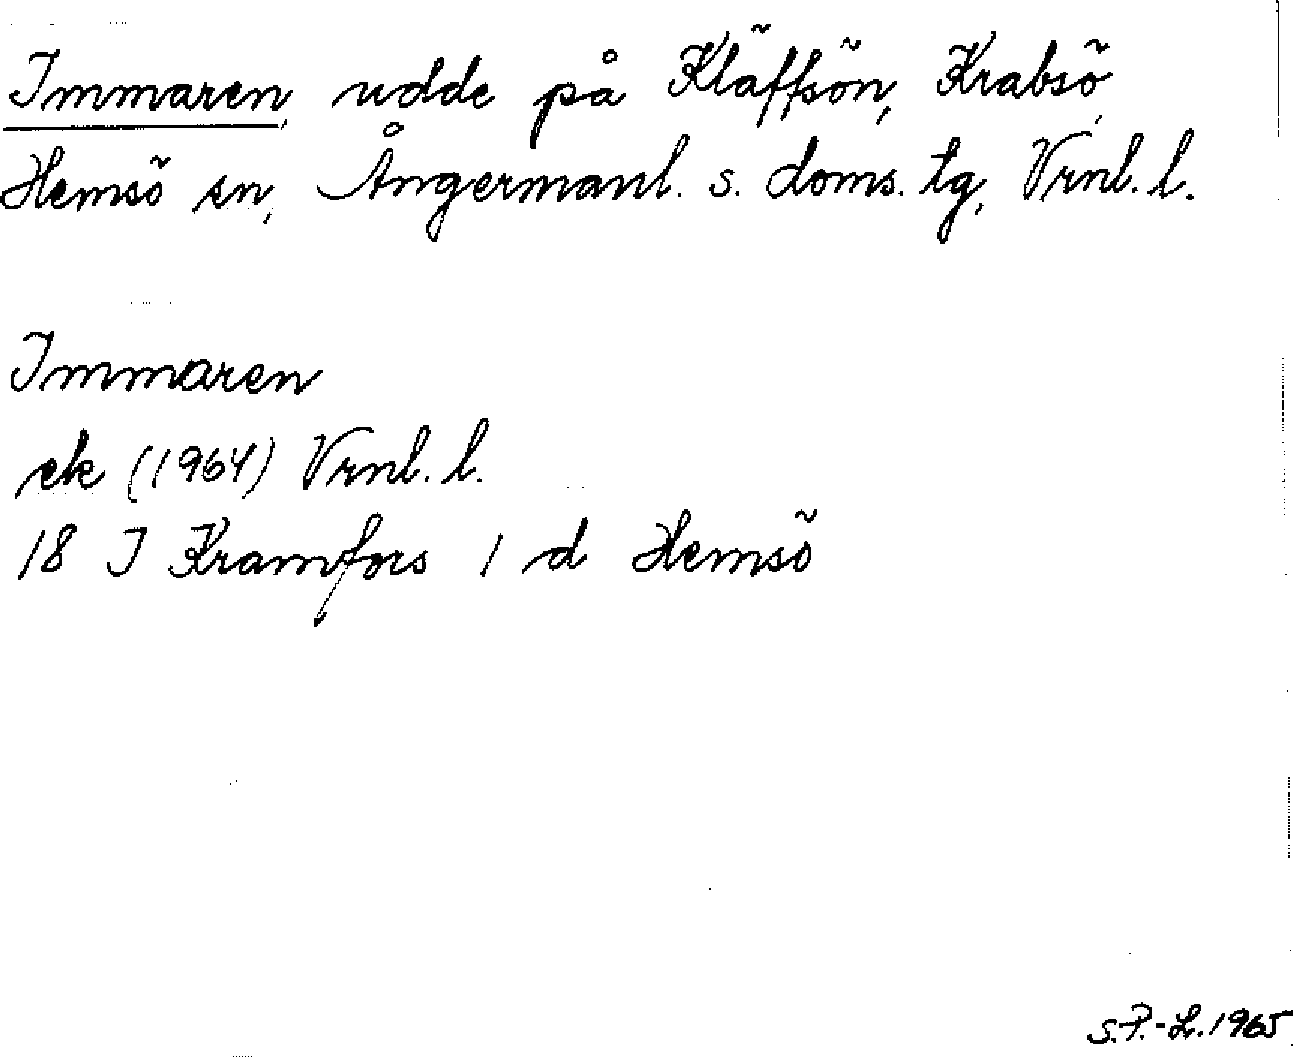 Immaren, udde på Kläffsön, Krabsö,
Hemsö sn, Ångermanl. s. doms. tg, Vrnl. l.
Immaren
ek (1964) Vrnl. l.
18 I Kramfors 1 d Hemsö
S.P.-L. 1965